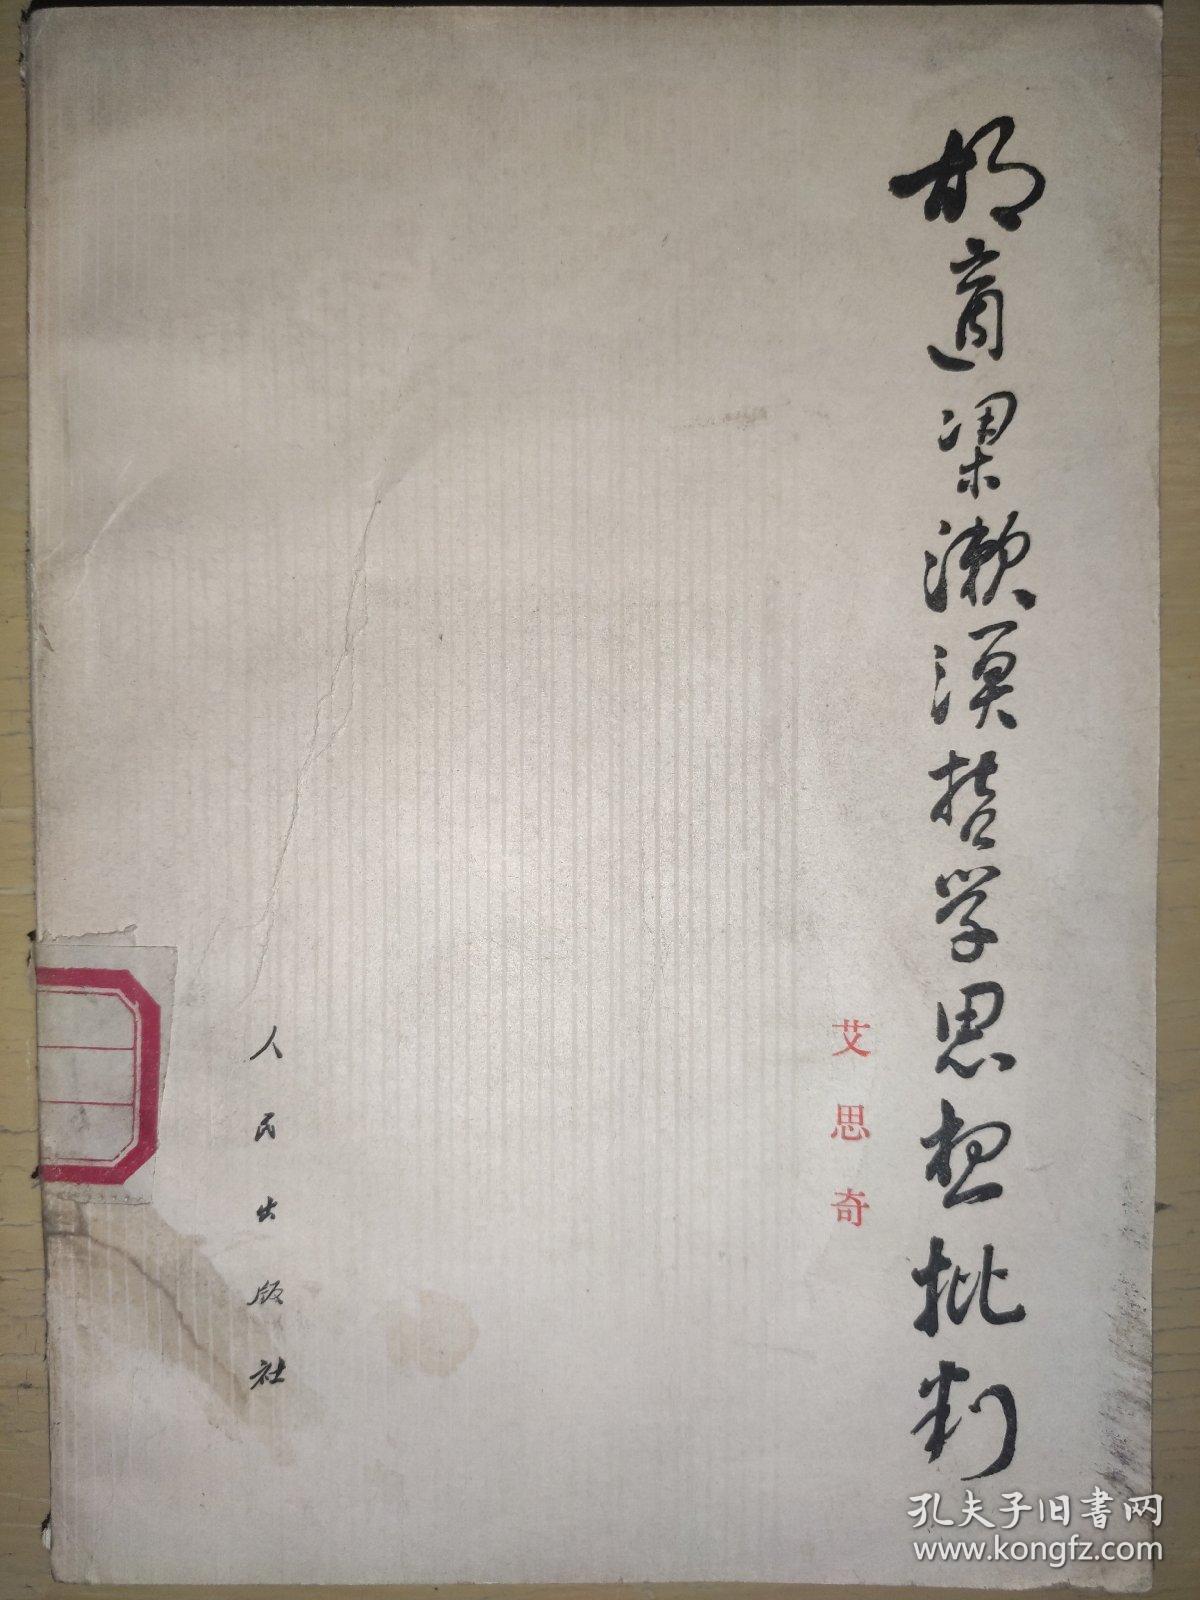 胡適梁漱溟哲学思想批判
艾思奇
人民出版社
孔夫子旧書网
www.kongfz.com